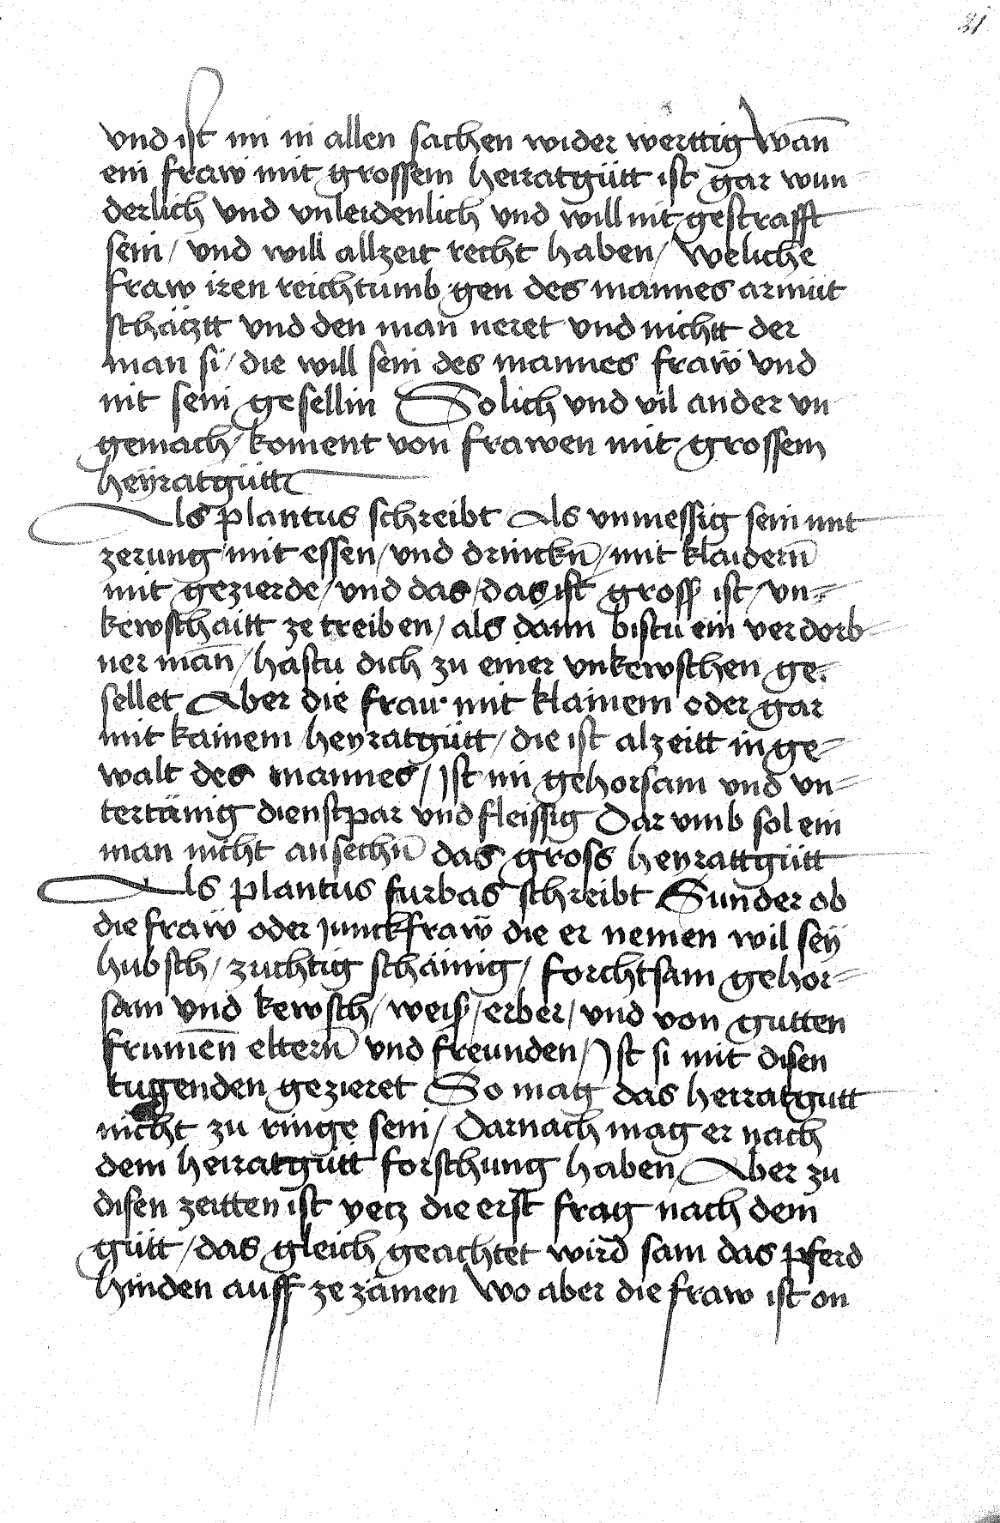 21
vnd ist im in allen sachen wider werttig Wan̄
ein fraw mit grossem heiratgütt ist gar wun-
derlich vnd vnleidenlich vnd will nit gestrafft
sein / vnd will allzeit recht haben / Weliche
fraw iren reichtumb gen des mannes armüt
schäcztt vnd den man neret vnd nichtt der
man si / die will sein des mannes fraẅ vnd
nit sein gesellin Solich vnd vil ander vn
gemach / koment von frawen mit grossem
heÿratgütt
Als plantus schreibt Als vnmessig sein mit
zerung mit essen / vnd drinckn̄ / mit klaidern̄
mit gezierde / vnd das / das ist gross ist / vn-
kewschaitt ze treiben / als dann bistu ein verdorb-
ner man̄ / hastu dich zu einer vnkewschen ge-
sellet Aber die fraw mit klainem oder gar
mit kainem heyratgütt / die ist alzeitt in ge-
walt des mannes / Ist im gehorsam vnd vn-
tertänig dienstpar vnd fleissig Dar vmb sol ein
man nicht ansechn̄ das gross heyrattgütt
Als plantus furbas schreibt Sunder ob
die fraẅ oder junckfraẅ die er nemen wil seÿ
hubsch / zuchtig schämig / forchtsam gehor-
sam vnd kewsch / weis / erber / vnd von gutten
frumen̄ eltern̄ vnd freunden / Ist si mit disen
tugenden gezieret So mag das heiratgutt
nicht zu ringe sein / Darnach mag er nach
dem heiratgutt forschung haben / Aber zu
disen zeitten ist yecz die erst frag nach dem
gütt / das gleich geachtet wird sam das pferd
hinden auff ze zämen Wo aber die fraw ist on